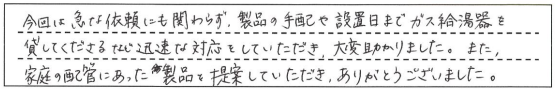 今回は急な依頼にも関わらず、製品の手配や設置日までガス給湯器を
貸してくださるなど迅速な対応をしていただき、大変助かりました。また、
家庭の配管にあった製品を提案していただき、ありがとうございました。